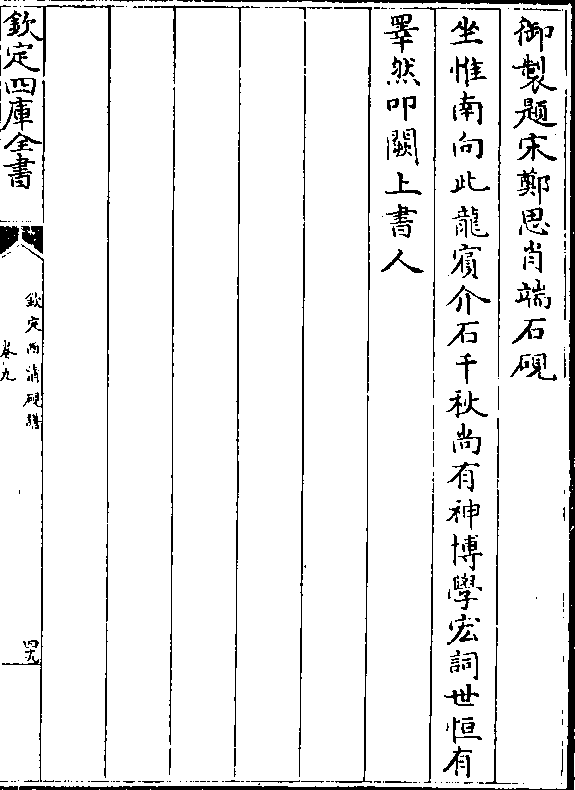 御製題宋鄭思肖端石硯
坐惟南向此龍賓介石千秋尚有神博學宏詞世恒有
睪然叩闕上書人
欽定四庫全書
欽定西清硯譜
卷九
四九